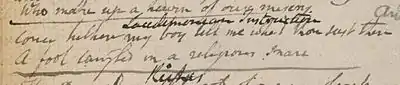 Who made up a heaven of our misery
Lacedemonian Instruction
Come hither my boy tell me what thou seest there
A fool tangled in a religious snare